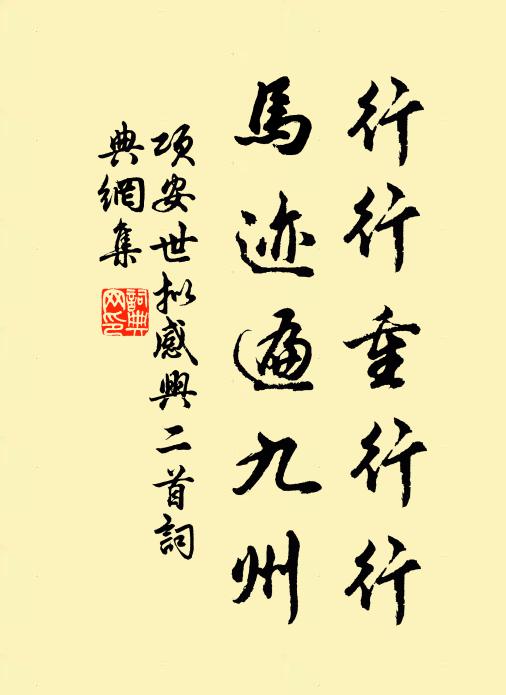 行行重行行
馬迹遍九州
項安世拟感興二首詞
典網集
詞典
网印